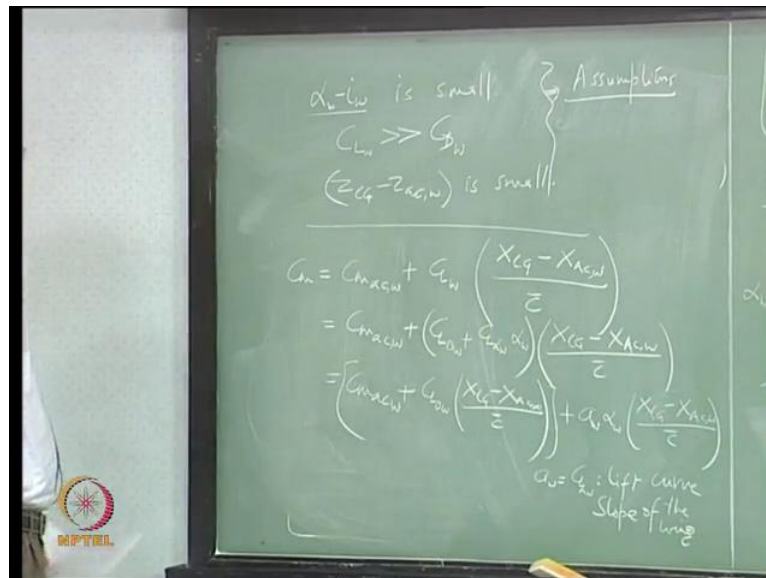 α_w - i_w is small } Assumptions
C_Lw >> C_Dw
(Z_CG - Z_AC,w) is small.
C_m = C_mac,w + C_Lw ( (X_CG - X_AC,w) / c̄ )
= C_mac,w + (C_L0w + C_Lαw α_w) ( (X_CG - X_AC,w) / c̄ )
= [C_mac,w + C_L0w ( (X_CG - X_AC,w) / c̄ )] + a_w α_w ( (X_CG - X_AC,w) / c̄ )
a_w = C_Lαw : lift curve
Slope of the
wing
NPTEL